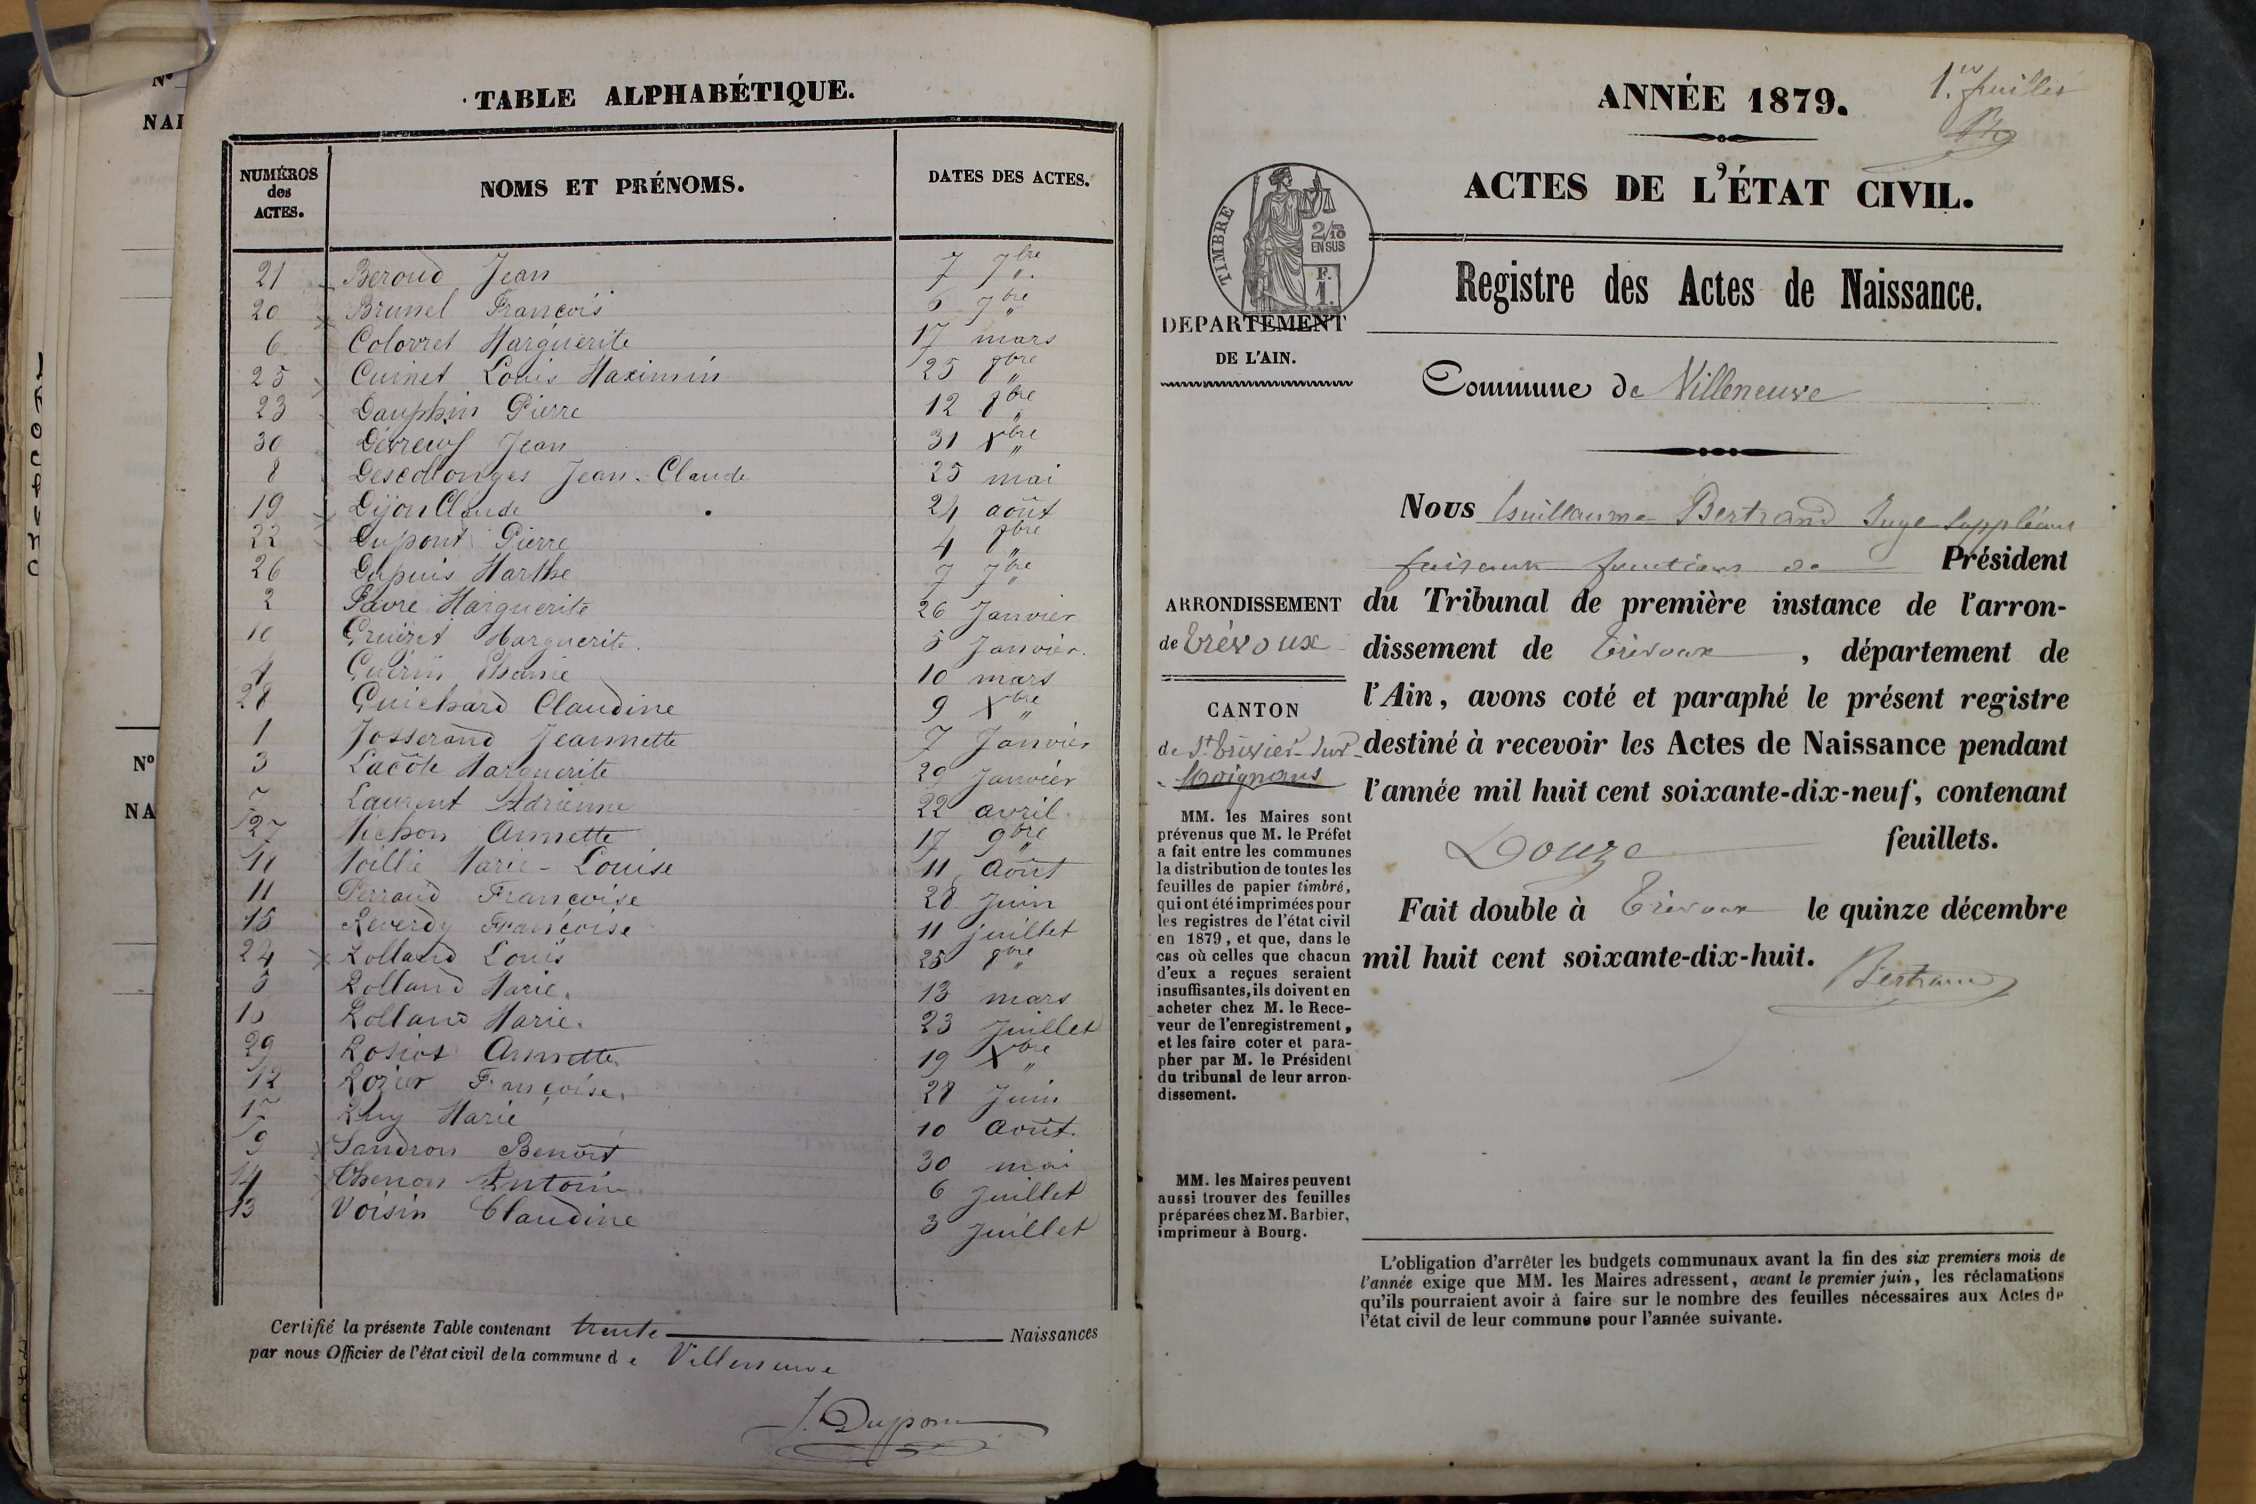 TABLE ALPHABÉTIQUE.
NUMÉROS
des
ACTES.
NOMS ET PRÉNOMS.
DATES DES ACTES.
21 Beroud Jean 7 7bre
20 Brunel François 6 7bre
6 Colovret Marguerite 17 mars
25 Cuinet Louis Maximin 25 8bre
23 Dauphin Pierre 12 8bre
30 Jean 31 Xbre
8 Descollonges Jean-Claude 25 mai
19 Dijon Claude 24 août
22 Dupont Pierre 4 8bre
26 Dupuis Marthe 7 9bre
2 Favre Marguerite 26 Janvier
Marguerite 5 Janvier.
4 Guérin 10 mars
28 Guichard Claudine 9 Xbre
1 Josserand Jeannette 7 Janvier
3 Lacôte Marguerite 29 Janvier
7 Laurent Adrienne 22 avril
27 Michon Annette 17 9bre
Marie-Louise 11 Août
11 Perraud Françoise 28 Juin
15 Reverdy Françoise 11 juillet
24 Rolland Louis 25 8bre
5 Rolland Marie. 13 mars
Rolland Marie. 23 Juillet
29 Annette 19 Xbre
12 Rozier Françoise. 28 Juin
17 Ruy Marie 10 Août.
9 Sandron Benoît 30 mai
14 Thenon Antoine 6 Juillet
13 Voisin Claudine 3 Juillet
Certifié la présente Table contenant trente Naissances
par nous Officier de l'état civil de la commune de Villeneuve
J. Dupont
Nº
NAI
Nº
NA
ANNÉE 1879.
1er feuillet
ACTES DE L'ÉTAT CIVIL.
TIMBRE
2/10
EN SUS
F.
1.
Registre des Actes de Naissance.
DEPARTEMENT
DE L'AIN.
Commune de Villeneuve
Nous Guillaume Bertrand Juge Suppléant
faisant fonctions de Président
du Tribunal de première instance de l'arron-
dissement de Trévoux, département de
l'Ain, avons coté et paraphé le présent registre
destiné à recevoir les Actes de Naissance pendant
l'année mil huit cent soixante-dix-neuf, contenant
Douze feuillets.
Fait double à Trévoux le quinze décembre
mil huit cent soixante-dix-huit.
Bertrand
ARRONDISSEMENT
de Trévoux
CANTON
de St Trivier-sur-
Moignans
MM. les Maires sont
prévenus que M. le Préfet
a fait entre les communes
la distribution de toutes les
feuilles de papier timbré,
qui ont été imprimées pour
les registres de l'état civil
en 1879, et que, dans le
cas où celles que chacun
d'eux a reçues seraient
insuffisantes, ils doivent en
acheter chez M. le Rece-
veur de l'enregistrement,
et les faire coter et para-
pher par M. le Président
du tribunal de leur arron-
dissement.
MM. les Maires peuvent
aussi trouver des feuilles
préparées chez M. Barbier,
imprimeur à Bourg.
L'obligation d'arrêter les budgets communaux avant la fin des six premiers mois de
l'année exige que MM. les Maires adressent, avant le premier juin, les réclamations
qu'ils pourraient avoir à faire sur le nombre des feuilles nécessaires aux Actes de
l'état civil de leur commune pour l'année suivante.